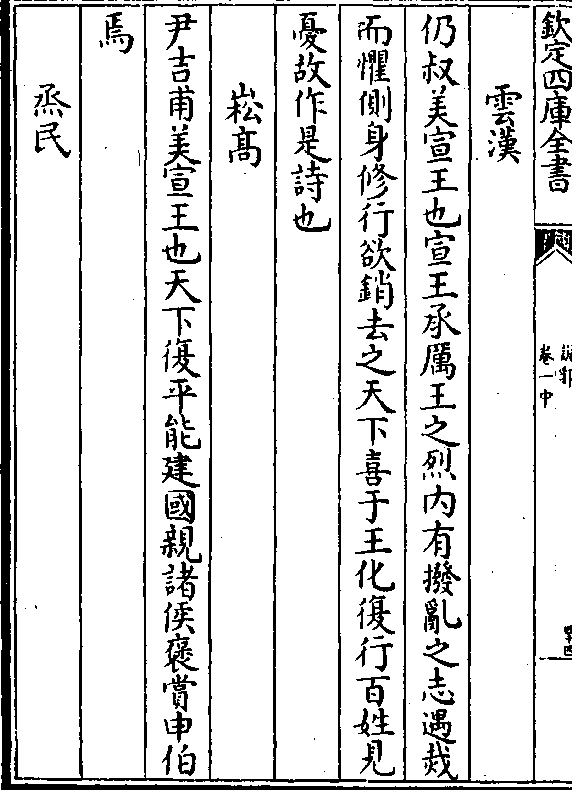 欽定四庫全書
說郛
卷一中
雲漢
仍叔美宣王也宣王承厲王之烈内有撥亂之志遇烖
而懼側身修行欲銷去之天下喜于王化復行百姓見
憂故作是詩也
崧髙
尹吉甫美宣王也天下復平能建國親諸侯褒賞申伯
焉
烝民